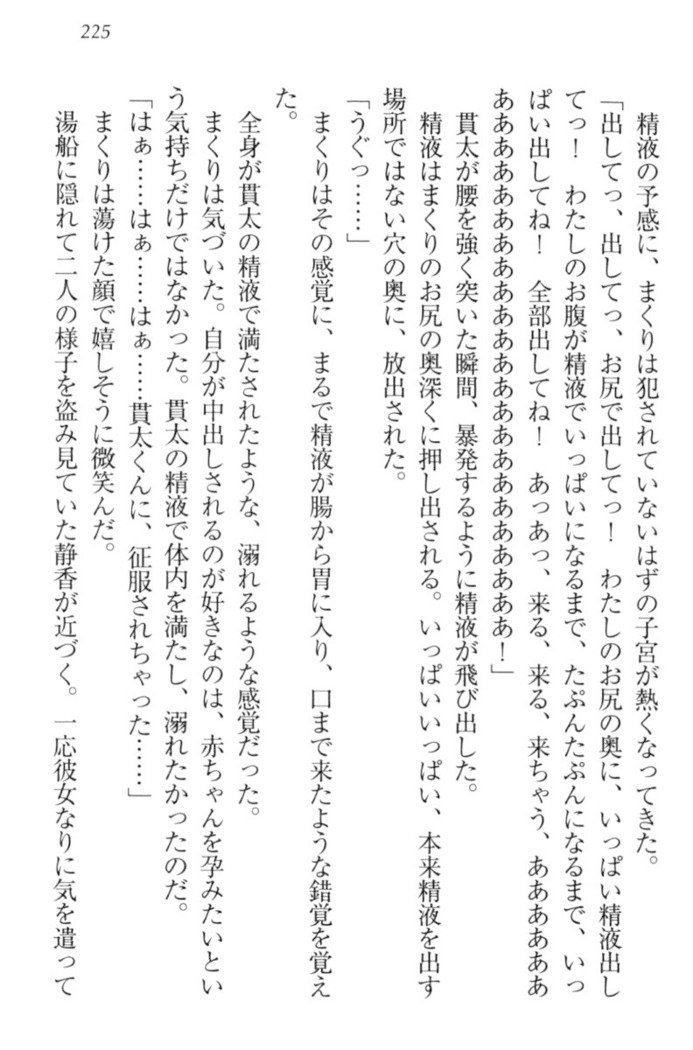 225
精液の予感に、まくりは犯されていないはずの子宮が熱くなってきた。
「出してっ、出してっ、お尻で出してっ！　わたしのお尻の奥に、いっぱい精液出し
てっ！　わたしのお腹が精液でいっぱいになるまで、たぷんたぷんになるまで、いっ
ぱい出してね！　全部出してね！　あっあっ、来る、来る、来ちゃう、ああああああ
ああああああああああああああああああああああああ！」
貫太が腰を強く突いた瞬間、暴発するように精液が飛び出した。
精液はまくりのお尻の奥深くに押し出される。いっぱいいっぱい、本来精液を出す
場所ではない穴の奥に、放出された。
「うぐっ……」
まくりはその感覚に、まるで精液が腸から胃に入り、口まで来たような錯覚を覚え
た。
全身が貫太の精液で満たされたような、溺れるような感覚だった。
まくりは気づいた。自分が中出しされるのが好きなのは、赤ちゃんを孕みたいとい
う気持ちだけではなかった。貫太の精液で体内を満たし、溺れたかったのだ。
「はぁ……はぁ……はぁ……貫太くんに、征服されちゃった……」
まくりは蕩けた顔で嬉しそうに微笑んだ。
湯船に隠れて二人の様子を盗み見ていた静香が近づく。一応彼女なりに気を遣って